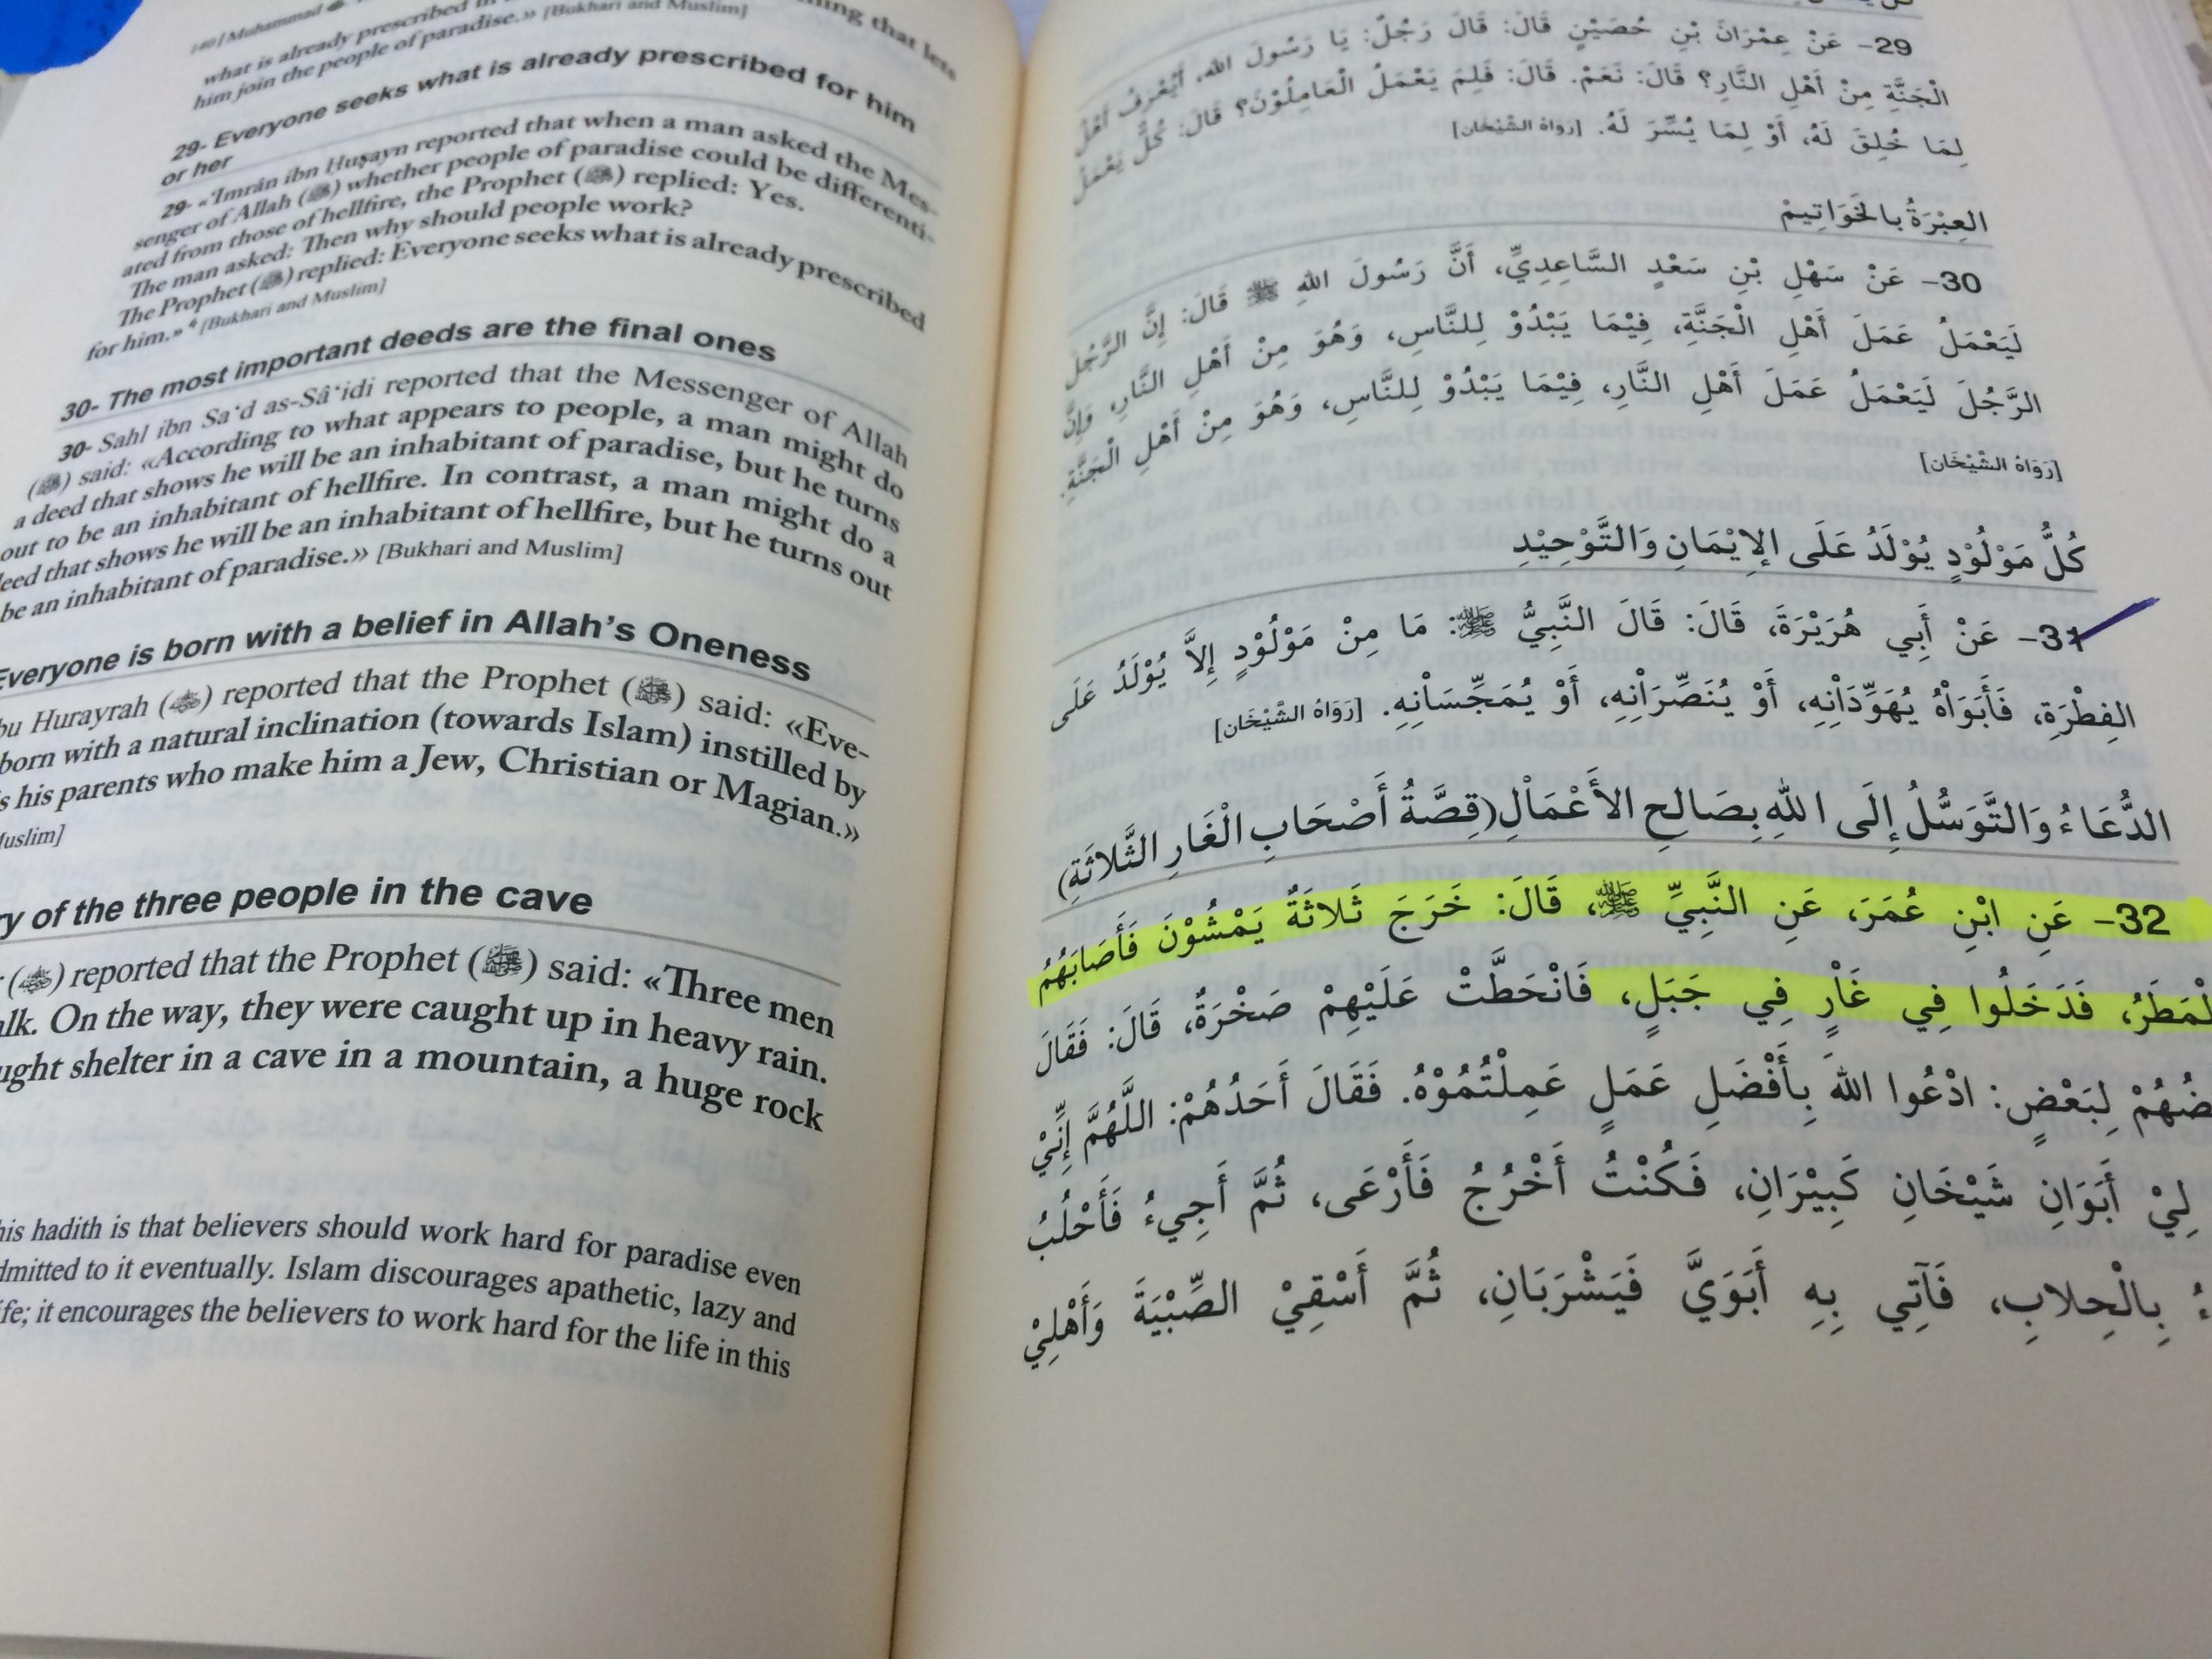 140 | Muhammad ﷺ
what is already prescribed
him join the people of paradise.» [Bukhari and Muslim]
29- Everyone seeks what is already prescribed for him
or her
29- «'Imrân ibn Ḥuṣayn reported that when a man asked the Mes-
senger of Allah (ﷺ) whether people of paradise could be differenti-
ated from those of hellfire, the Prophet (ﷺ) replied: Yes.
The man asked: Then why should people work?
The Prophet (ﷺ) replied: Everyone seeks what is already prescribed
for him.» [Bukhari and Muslim]
30- The most important deeds are the final ones
30- Sahl ibn Sa'd as-Sâ'idi reported that the Messenger of Allah
(ﷺ) said: «According to what appears to people, a man might do
a deed that shows he will be an inhabitant of paradise, but he turns
out to be an inhabitant of hellfire. In contrast, a man might do a
deed that shows he will be an inhabitant of hellfire, but he turns out
be an inhabitant of paradise.» [Bukhari and Muslim]
Everyone is born with a belief in Allah's Oneness
Hurayrah () reported that the Prophet (ﷺ) said: «Eve-
born with a natural inclination (towards Islam) instilled by
his parents who make him a Jew, Christian or Magian.»
Muslim]
of the three people in the cave
() reported that the Prophet (ﷺ) said: «Three men
On the way, they were caught up in heavy rain.
shelter in a cave in a mountain, a huge rock
hadith is that believers should work hard for paradise even
to it eventually. Islam discourages apathetic, lazy and
it encourages the believers to work hard for the life in this
29- عَنْ عِمْرَانَ بْنِ حُصَيْنٍ قَالَ: قَالَ رَجُلٌ: يَا رَسُولَ الله، أَيُعْرَفُ أَهْلُ
الْجَنَّةِ مِنْ أَهْلِ النَّارِ؟ قَالَ: نَعَمْ. قَالَ: فَلِمَ يَعْمَلُ الْعَامِلُوْنَ؟ قَالَ: كُلٌّ يَعْمَلُ
لِمَا خُلِقَ لَهُ، أَوْ لِمَا يُسِّرَ لَهُ. [رَوَاهُ الشَّيْخَان]
العِبْرَةُ بالخَوَاتِيمْ
30- عَنْ سَهْلِ بْنِ سَعْدٍ السَّاعِدِيِّ، أَنَّ رَسُولَ اللهِ ﷺ قَالَ: إِنَّ الرَّجُلَ
لَيَعْمَلُ عَمَلَ أَهْلِ الْجَنَّةِ، فِيْمَا يَبْدُوْ لِلنَّاسِ، وَهُوَ مِنْ أَهْلِ النَّارِ، وَإِنَّ
الرَّجُلَ لَيَعْمَلُ عَمَلَ أَهْلِ النَّارِ، فِيْمَا يَبْدُوْ لِلنَّاسِ، وَهُوَ مِنْ أَهْلِ الْجَنَّةِ.
[رَوَاهُ الشَّيْخَان]
كُلُّ مَوْلُوْدٍ يُوْلَدُ عَلَى الإِيْمَانِ وَالتَّوْحِيْدِ
31- عَنْ أَبِي هُرَيْرَةَ، قَالَ: قَالَ النَّبِيُّ ﷺ: مَا مِنْ مَوْلُوْدٍ إِلاَّ يُوْلَدُ عَلَى
الفِطْرَةِ، فَأَبَوَاْهُ يُهَوِّدَاْنِهِ، أَوْ يُنَصِّرَاْنِهِ، أَوْ يُمَجِّسَاْنِهِ. [رَوَاهُ الشَّيْخَان]
الدُّعَاءُ وَالتَّوَسُّلُ إِلَى اللهِ بِصَالِحِ الأَعْمَاْلِ (قِصَّةُ أَصْحَابِ الْغَارِ الثَّلاثَةِ)
32- عَنِ ابْنِ عُمَرَ، عَنِ النَّبِيِّ ﷺ، قَالَ: خَرَجَ ثَلاثَةٌ يَمْشُوْنَ فَأَصَابَهُمُ
لْمَطَرُ، فَدَخَلُوا فِي غَاْرٍ فِي جَبَلٍ، فَانْحَطَّتْ عَلَيْهِمْ صَخْرَةٌ، قَالَ: فَقَالَ
ضُهُمْ لِبَعْضٍ: ادْعُوا اللهَ بِأَفْضَلِ عَمَلٍ عَمِلْتُمُوْهُ. فَقَالَ أَحَدُهُمْ: اللَّهُمَّ إِنِّيْ
لِيْ أَبَوَانِ شَيْخَانِ كَبِيْرَانِ، فَكُنْتُ أَخْرُجُ فَأَرْعَى، ثُمَّ أَجِيءُ فَأَحْلُبُ
ءُ بِالْحِلابِ، فَآتِي بِهِ أَبَوَيَّ فَيَشْرَبَانِ، ثُمَّ أَسْقِيْ الصِّبْيَةَ وَأَهْلِيْ